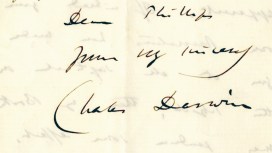 Dear Phillips
yours very sincerely
Charles Darwin